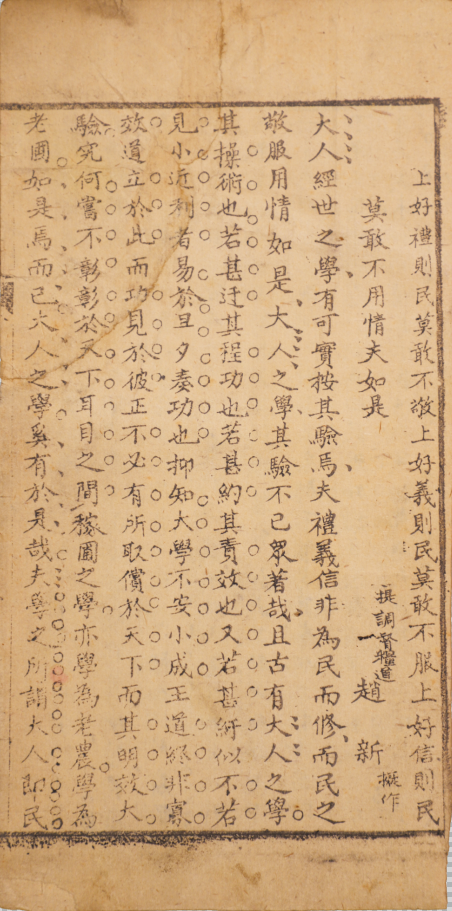 上好禮則民莫敢不敬上好義則民莫敢不服上好信則民
莫敢不用情夫如是
撰調督糧道趙新擬作
大人經世之學有可實按其驗焉夫禮義信非為民而修而民之
敬服用情如是大人之學其驗不已眾著哉且古有大人之學
其操術也若甚迂其程功也若甚約其責效也又若甚紆似不若
見小近利者易於旦夕奏功也抑知大學不安小成王道終非寡
效道立於此而功見於彼正不必有所取償於天下而其明效大
驗究何嘗不彰彰於天下耳目之間稼圃之學亦學為老農學為
老圃如是焉而已大人之學奚有於是哉夫學之所謂大人即民